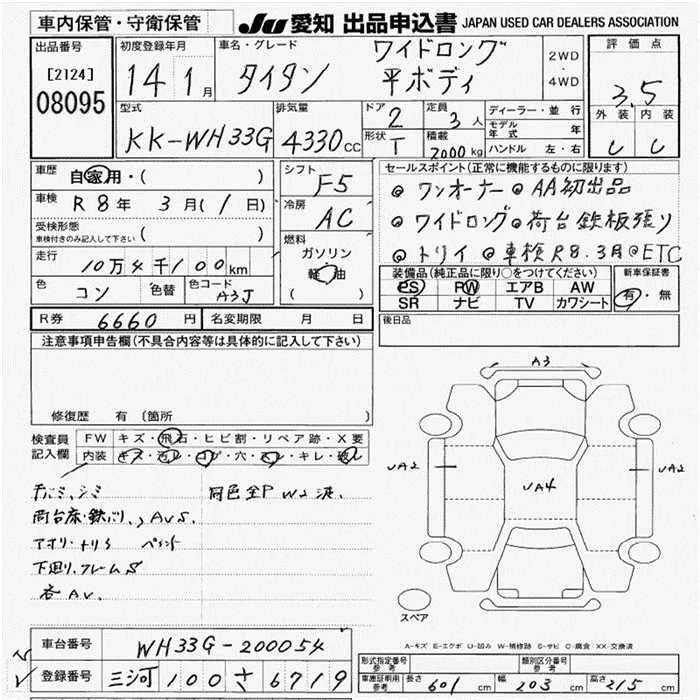 車内保管・守衛保管
JU 愛知 出品申込書 JAPAN USED CAR DEALERS ASSOCIATION
出品番号
[2124]
08095
初度登録年月
14 1月
車名・グレード
タイタン
ワイドロング
平ボディ
2WD
・
4WD
評価点
3.5
外装 内装
C C
型式
KK-WH33G
排気量
4330cc
ドア 2
形状 T
定員 3人
積載 2000kg
ディーラー・並行
モデル年式 年
ハンドル 左・右
車歴 自家用・( )
車検 R8年 3月(1日)
受検形態
車検付きのみ記入して下さい ( )
走行 10万4千100km
色 コン 色替 色コード A3J
シフト F5
冷房 AC
燃料
ガソリン
軽油
( )
セールスポイント(正常に機能するものに限ります)
◎ワンオーナー ◎AA初出品
◎ワイドロング ◎荷台鉄板張り
◎トリイ ◎車検R8.3月 ◎ETC
装備品(純正品に限り○をつけてください)
PS PW エアB AW
SR ナビ TV カワシート
新車保証書
有・無
R券 6660円 名変期限 月 日
後日品
注意事項申告欄(不具合内容等は具体的に記入して下さい)
修復歴 有 〔箇所 〕
検査員
記入欄
FW キズ・飛石・ヒビ割・リペア跡・X要
内装 キズ・汚レ・コゲ・穴・スレ・キレ・破レ
同色全P W2波、
荷台床・鉄バリ、AUS.
アオリ・トリイ ペイント
下廻り、フレームS
A3
UA2
UA4
UA2
スペア
A-キズ E-エクボ U-凹み W-補修跡 S-サビ C-腐食 XX-交換済
車台番号 WH33G-200054
登録番号 三河 100 さ 6719
形式指定番号 参考
類別区分番号 参考
車庫証明用 参考 長さ 601cm 幅 203cm 高さ 215cm